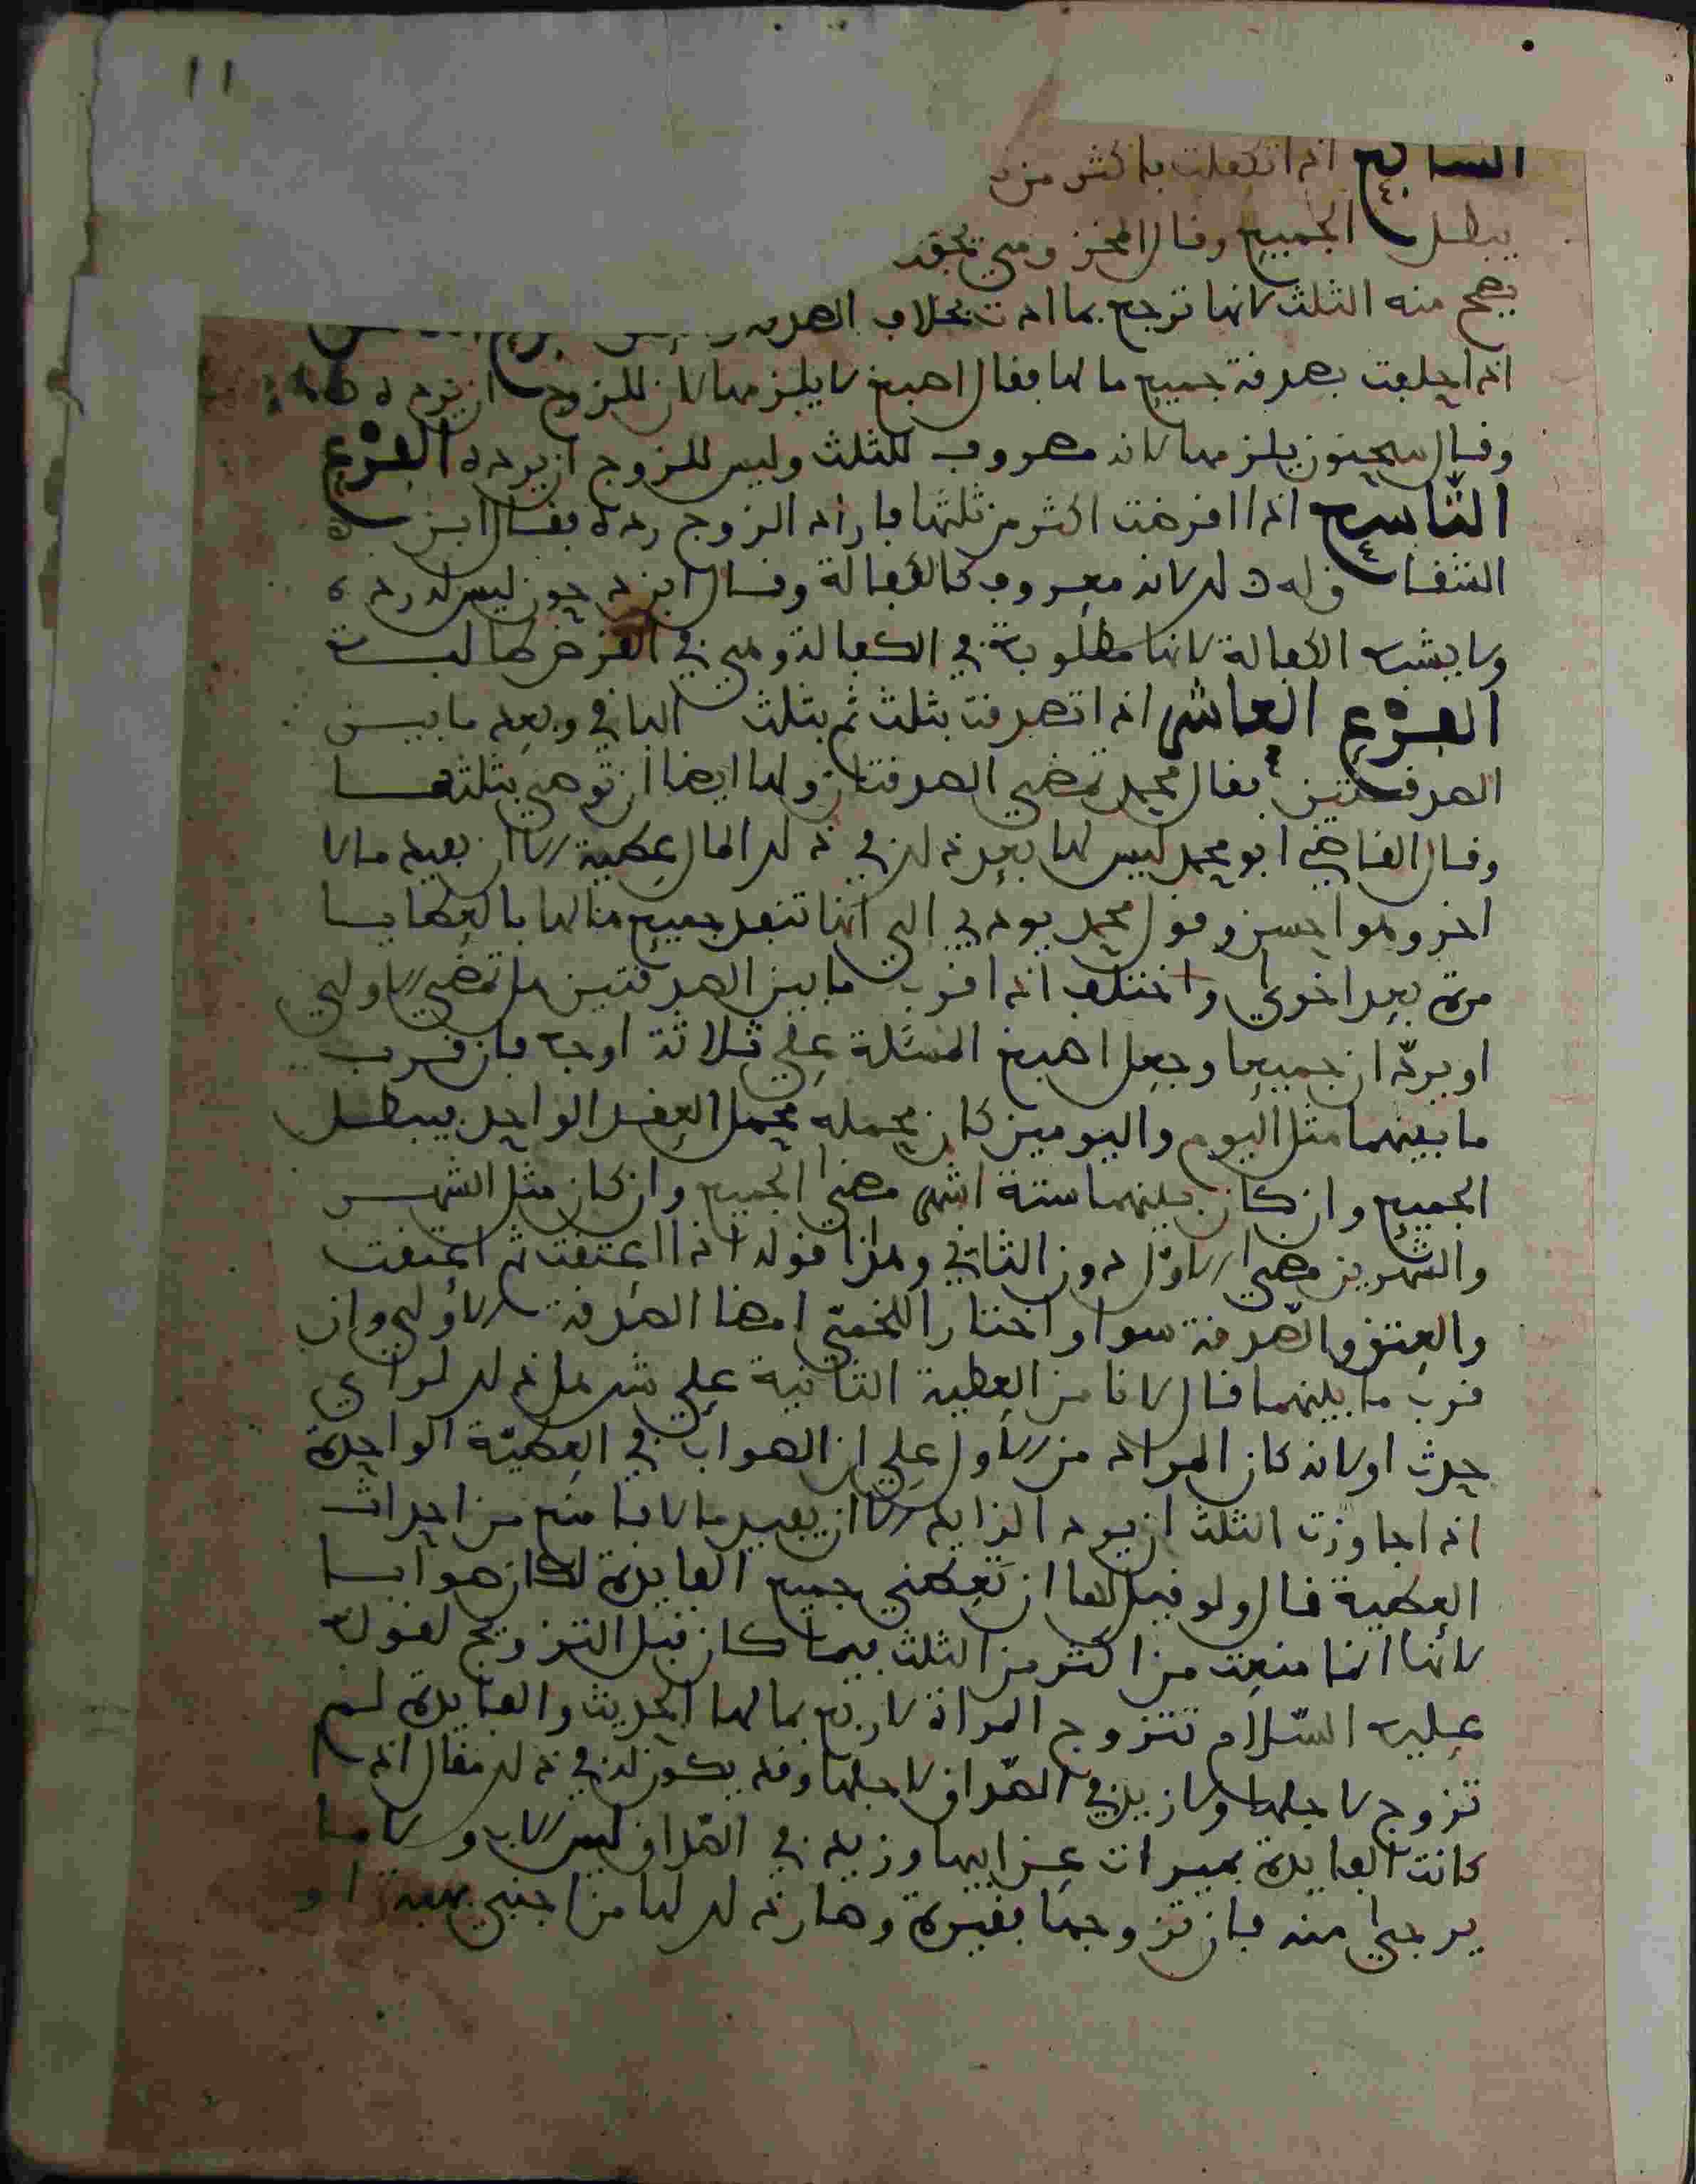 ١١
السابع اذا تكفلت باكثر من
يبطل الجميع وقال المخزومي
يصح منه الثلث لانها ترجع بما ادت بخلاف الصدقة
اذا حلفت بصدقة جميع مالها فقال اصبغ لا يلزمها لان للزوج ان يرده
وقال سحنون يلزمها لانه مصروف للثلث وليس للزوج ان يرده الفرع
التاسع اذا اقرضت اكثر من ثلثها فاراد الزوج رده فقال ابن
الشقاق له ذلك لانه معروف كالكفالة وقال ابن دحون ليس له رده
ولا يشبه الكفالة لانها مطلوبة في الكفالة وهي في القرض طالبة
الفرع العاشر اذا تصدقت بثلث ثم بثلث الباقي وبعد ما بين
الصدقتين فقال محمد تمضي الصدقتان ولها ايضا ان توصي بثلثها
وقال القاضي ابو محمد ليس لها بعد ذلك في ذلك المال عطية الا ان يفيد مالا
اخر وهو احسن وقول محمد يودي الى انها تنفد جميع مالها بالعطايا
مرة بعد اخرى واختلف اذا قرب ما بين الصدقتين هل تمضي الاولى
او يردان جميعا وجعل اصبغ المسئلة على ثلاثة اوجه فان قرب
ما بينهما مثل اليوم واليومين كان محمله محمل العقد الواحد يبطل
الجميع وان كان بينهما ستة اشهر مضى الجميع وان كان مثل الشهر
والشهرين مضى الاول دون الثاني وهذا قوله اذا اعتقت ثم اعتقت
والعتق والصدقة سوا واختار اللخمي امضا الصدقة الاولى وان
قرب ما بينهما قال لانا من العطية الثانية على شك هل ذلك لراي
حدث او لانه كان المراد من الاول على ان الصواب في العطية الواحدة
اذا جاوزت الثلث ان يرد الزايد الا ان يفيد مالا فامنع من احداث
العطية قال ولو قيل لها ان تعطي جميع الفايدة لكان صوابا
لانها انما منعت من اكثر من الثلث فيما كان قبل التزويج لقوله
عليه السلام تتزوج المراة لاربع بمالها الحديث والفايدة لم
تزوج لاجلها ولا زيد في الصداق لاجلها وقد يكون له في ذلك مقال اذا
كانت الفايدة بميراث عن ابيها وزيد في الصداق ليسر الاب ولما
يرجى منه فان تزوجها فقيرة وصار ذلك لها من اجنبي بهبة او